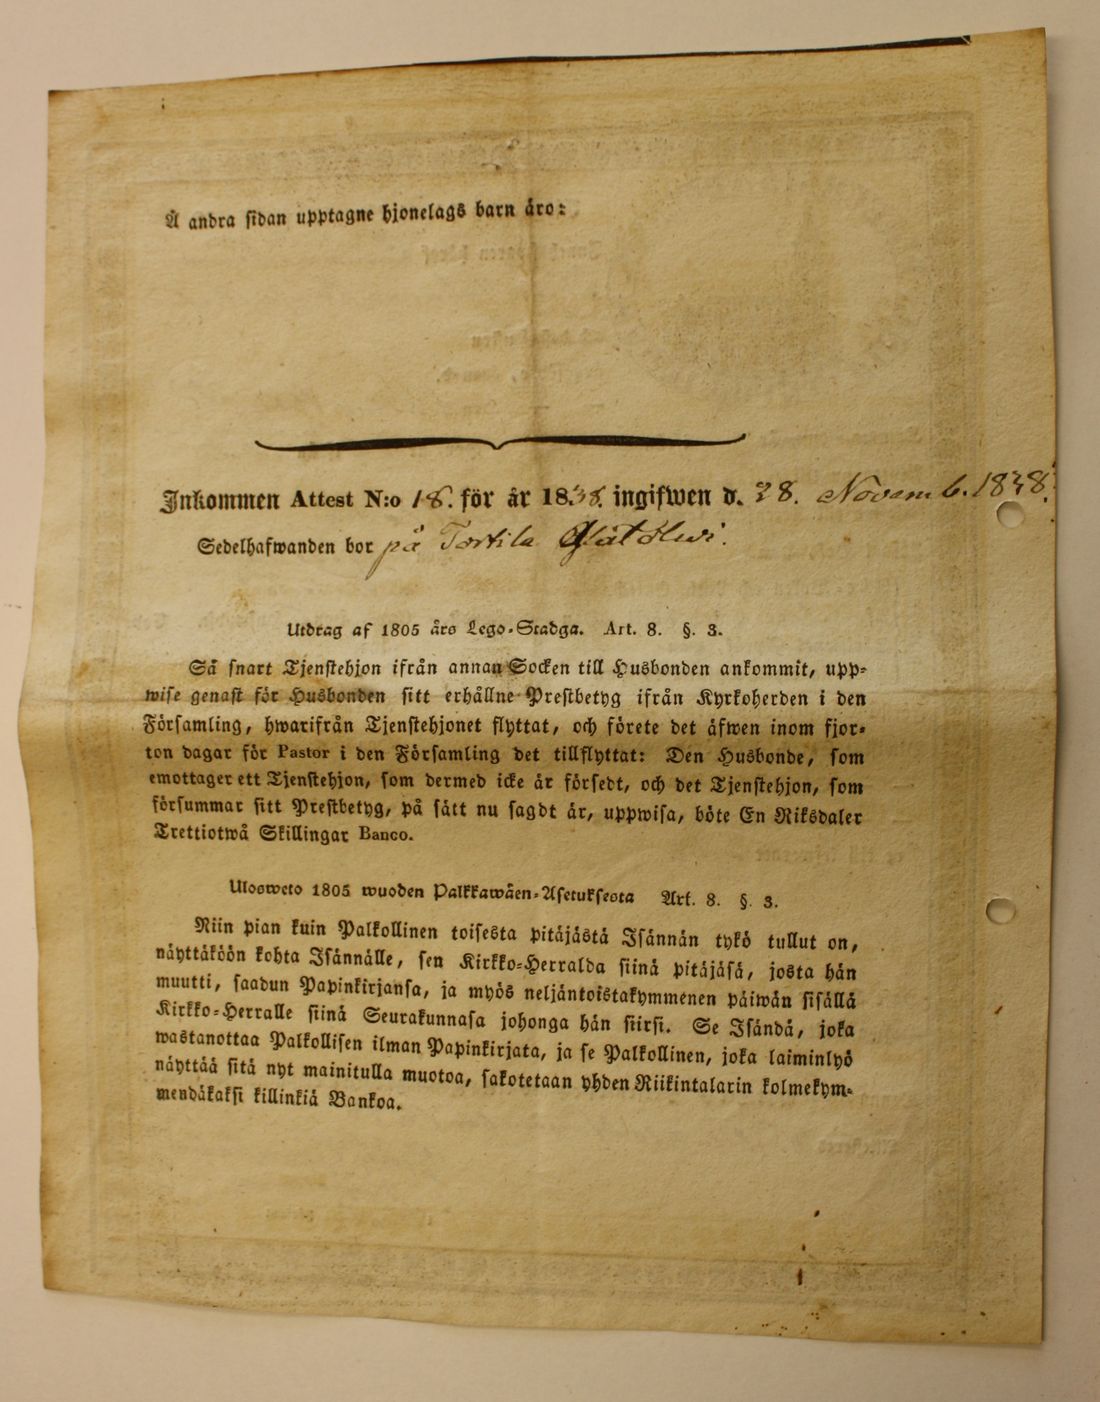 Å andra sidan upptagne hjonelags barn äro:
Inkommen Attest N:o 18. för år 1838. ingifwen d. 28. Novemb. 1838.
Sedelhafwanden bor på Tortila
Utdrag af 1805 års Lego-Stadga. Art. 8. §. 3.
Så snart Tjenstehjon ifrån annan Socken till Husbonden ankommit, upp-
wise genast för Husbonden sitt erhållne Prestbetyg ifrån Kyrkoherden i den
Församling, hwarifrån Tjenstehjonet flyttat, och förete det äfwen inom fjor-
ton dagar för Pastor i den Församling det tillflyttat: Den Husbonde, som
emottager ett Tjenstehjon, som dermed icke är försedt, och det Tjenstehjon, som
försummar sitt Prestbetyg, på sätt nu sagdt är, uppwisa, böte En Riksdaler
Trettiotwå Skillingar Banco.
Ulosweto 1805 wuoden Palkkawäen-Asetuksesta Art. 8. §. 3.
Niin pian kuin Palkollinen toisesta pitäjästä Isännän tykö tullut on,
näyttäköön kohta Isännälle, sen Kirkko-Herralda siinä pitäjäsä, josta hän
muutti, saadun Papinkirjansa, ja myös neljäntoistakymmenen päiwän sisällä
Kirkko-Herralle siinä Seurakunnasa johonga hän siirsi. Se Isändä, joka
wastanottaa Palkollisen ilman Papinkirjata, ja se Palkollinen, joka laiminlyö
näyttää sitä nyt mainitulla muotoa, sakotetaan yhden Riikintalarin kolmekym-
mendäkaksi killinkiä Bankoa.